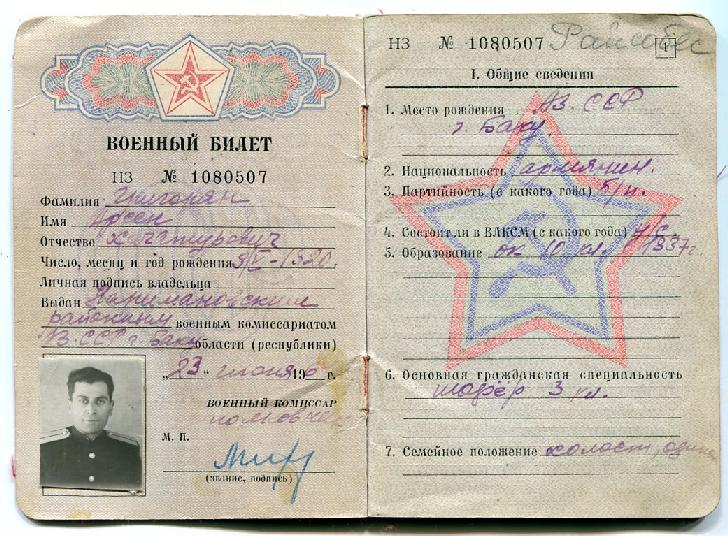 ВОЕННЫЙ БИЛЕТ
НЗ № 1080507
Фамилия Григорян
Имя Арсен
Отчество
Число, месяц и год рождения 1920.
Личная подпись владельца
Выдан Наримановским
военным комиссариатом
Аз. ССР г. Баку области (республики)
„23“ 196 г.
ВОЕННЫЙ КОМИССАР
полковник
М. П.
(звание, подпись)
НЗ № 1080507 Райсобес
1
I. Общие сведения
1. Место рождения Аз. ССР
г. Баку
2. Национальность армянин.
3. Партийность (с какого года) б/п.
4. Состоит ли в ВЛКСМ (с какого года) н/с.
5. Образование ок 10 кл. 1937г.
6. Основная гражданская специальность
шофёр 3 кл.
7. Семейное положение холост,